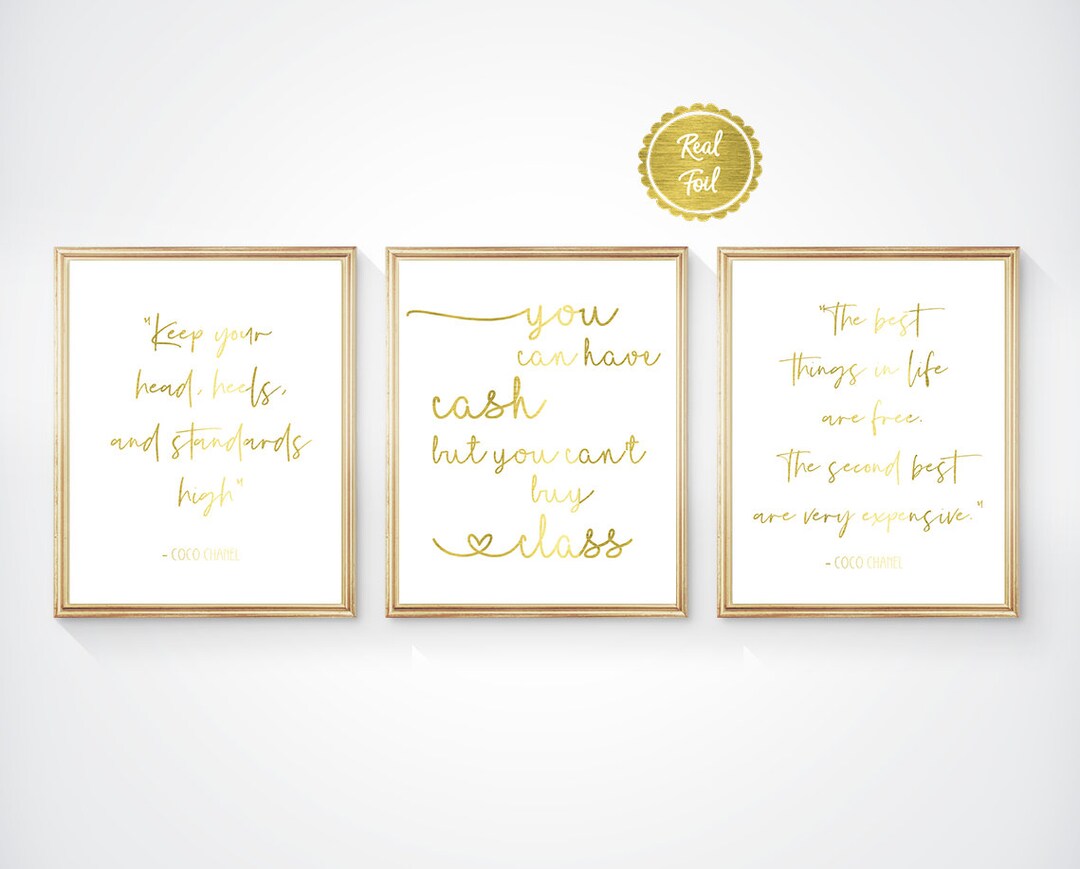 Real
Foil
"Keep your
head, heels,
and standards
high"
- COCO CHANEL
you
can have
cash
but you can't
buy
class
"The best
things in life
are free.
The second best
are very expensive."
- COCO CHANEL